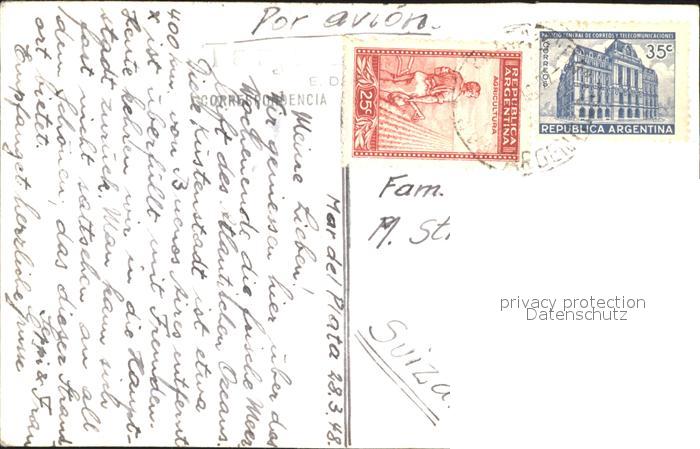 Por avión.
CORRESPONDENCIA
REPUBLICA ARGENTINA
AGRICULTURA
25c
PALACIO GENERAL DE CORREOS Y TELECOMUNICACIONES
CORREOS
35c
REPUBLICA ARGENTINA
Mar del Plata 28.3.48.
Meine Lieben!
Wir geniessen hier über das
Wochenende die frische Meer
luft des Atlantischen Ozeans.
Diese Küstenstadt ist etwa
400 km. von Buenos Aires entfernt
x ist überfüllt mit Fremden.
Heute kehren wir in die Haupt-
stadt zurück. Man kann sich
fast nicht sattsehen an all
dem Schönen, das dieser Strand
ort bietet.
Empfanget herzliche Grüsse
Seppi & Frau
Fam.
M. St
Suiza.
privacy protection
Datenschutz